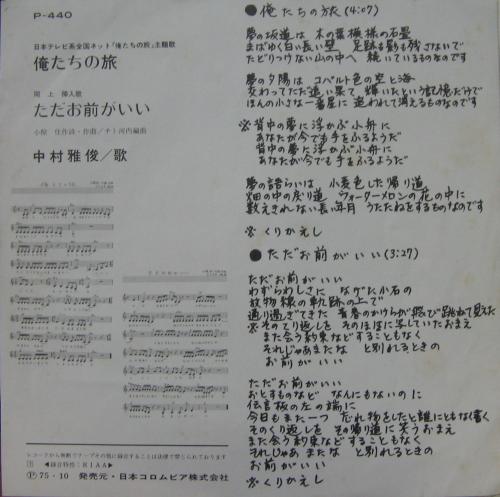 P-440
日本テレビ系全国ネット「俺たちの旅」主題歌
俺たちの旅
同上 挿入歌
ただお前がいい
小椋 佳作詩・作曲/チト河内編曲
中村雅俊/歌
レコードから無断でテープその他に録音することは法律で禁じられております
録音特性:RIAA
Ⓟ75・10 発売元・日本コロムビア株式会社
●俺たちの旅(4:07)
夢の坂道は 木の葉模様の石畳
まばゆく白い長い壁 足跡も影も残さないで
たどりつけない山の中へ 続いているものなのです
夢の夕陽は コバルト色の空と海
交わってただ遠い果て 輝いたという記憶だけで
ほんの小さな一番星に 追われて消えるものなのです
※背中の夢に浮かぶ小舟に
あなたが今でも手をふるようだ
背中の夢に浮かぶ小舟に
あなたが今でも手をふるようだ
夢の語らいは 小麦色した帰り道
畑の中の戻り道 ウォーターメロンの花の中に
数えきれない長い年月 うたたねをするものなのです
※くりかえし
●ただお前がいい(3:27)
ただお前がいい
わずらわしさに なげた小石の
放物線の軌跡の上で
通り過ぎてきた 青春のかけらが飛び跳ねて見えた
※そのてり返しを そのほほに写していたおまえ
また会う約束などすることもなく
それじゃあまたな と別れるときの
お前がいい
ただお前がいい
おとすものなど なんにもないのに
伝言板の左の端に
今日もまた一つ 忘れ物をしたと誰にともなく書く
そのくり返しを その帰り道に笑うおまえ
また会う約束など することもなく
それじゃあまたな と別れるときの
お前がいい
※くりかえし